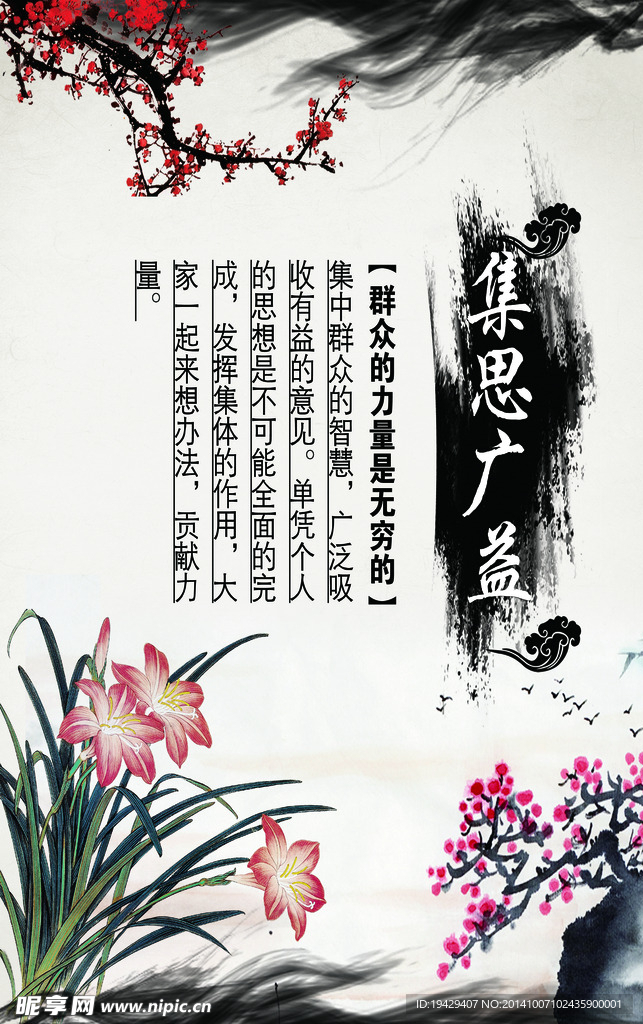 集思广益
【群众的力量是无穷的】
集中群众的智慧，广泛吸
收有益的意见。单凭个人
的思想是不可能全面的完
成，发挥集体的作用，大
家一起来想办法，贡献力
量。
昵享网 www.nipic.cn
ID:19429407 NO:20141007102435900001